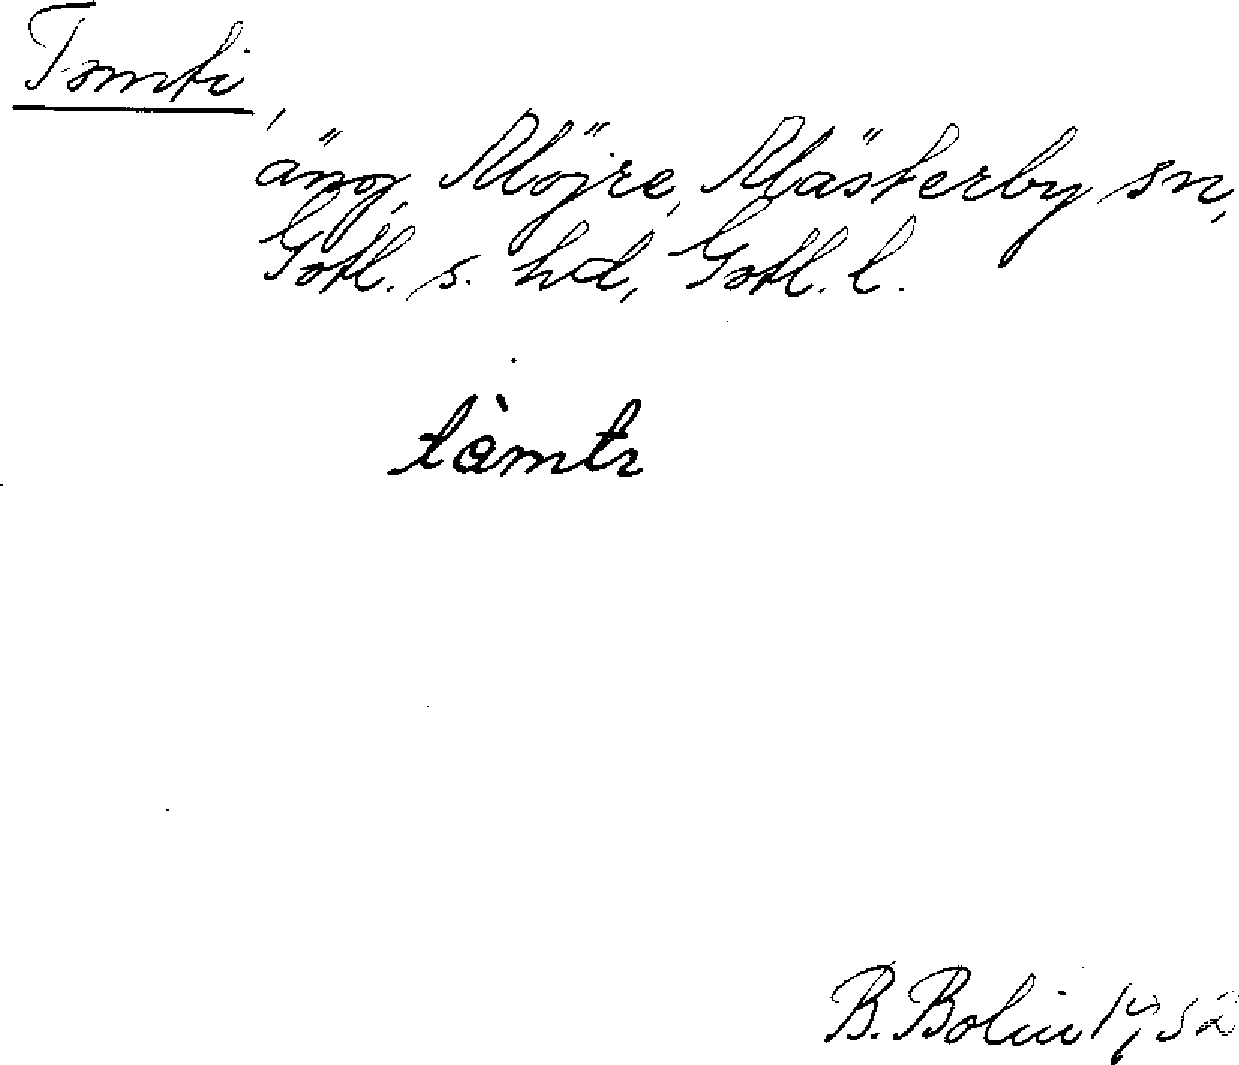 Tomti,
äng, Möjre, Mästerby sn,
Gotl. s. hd, Gotl. l.
tàmtı
B. Bolin 1952